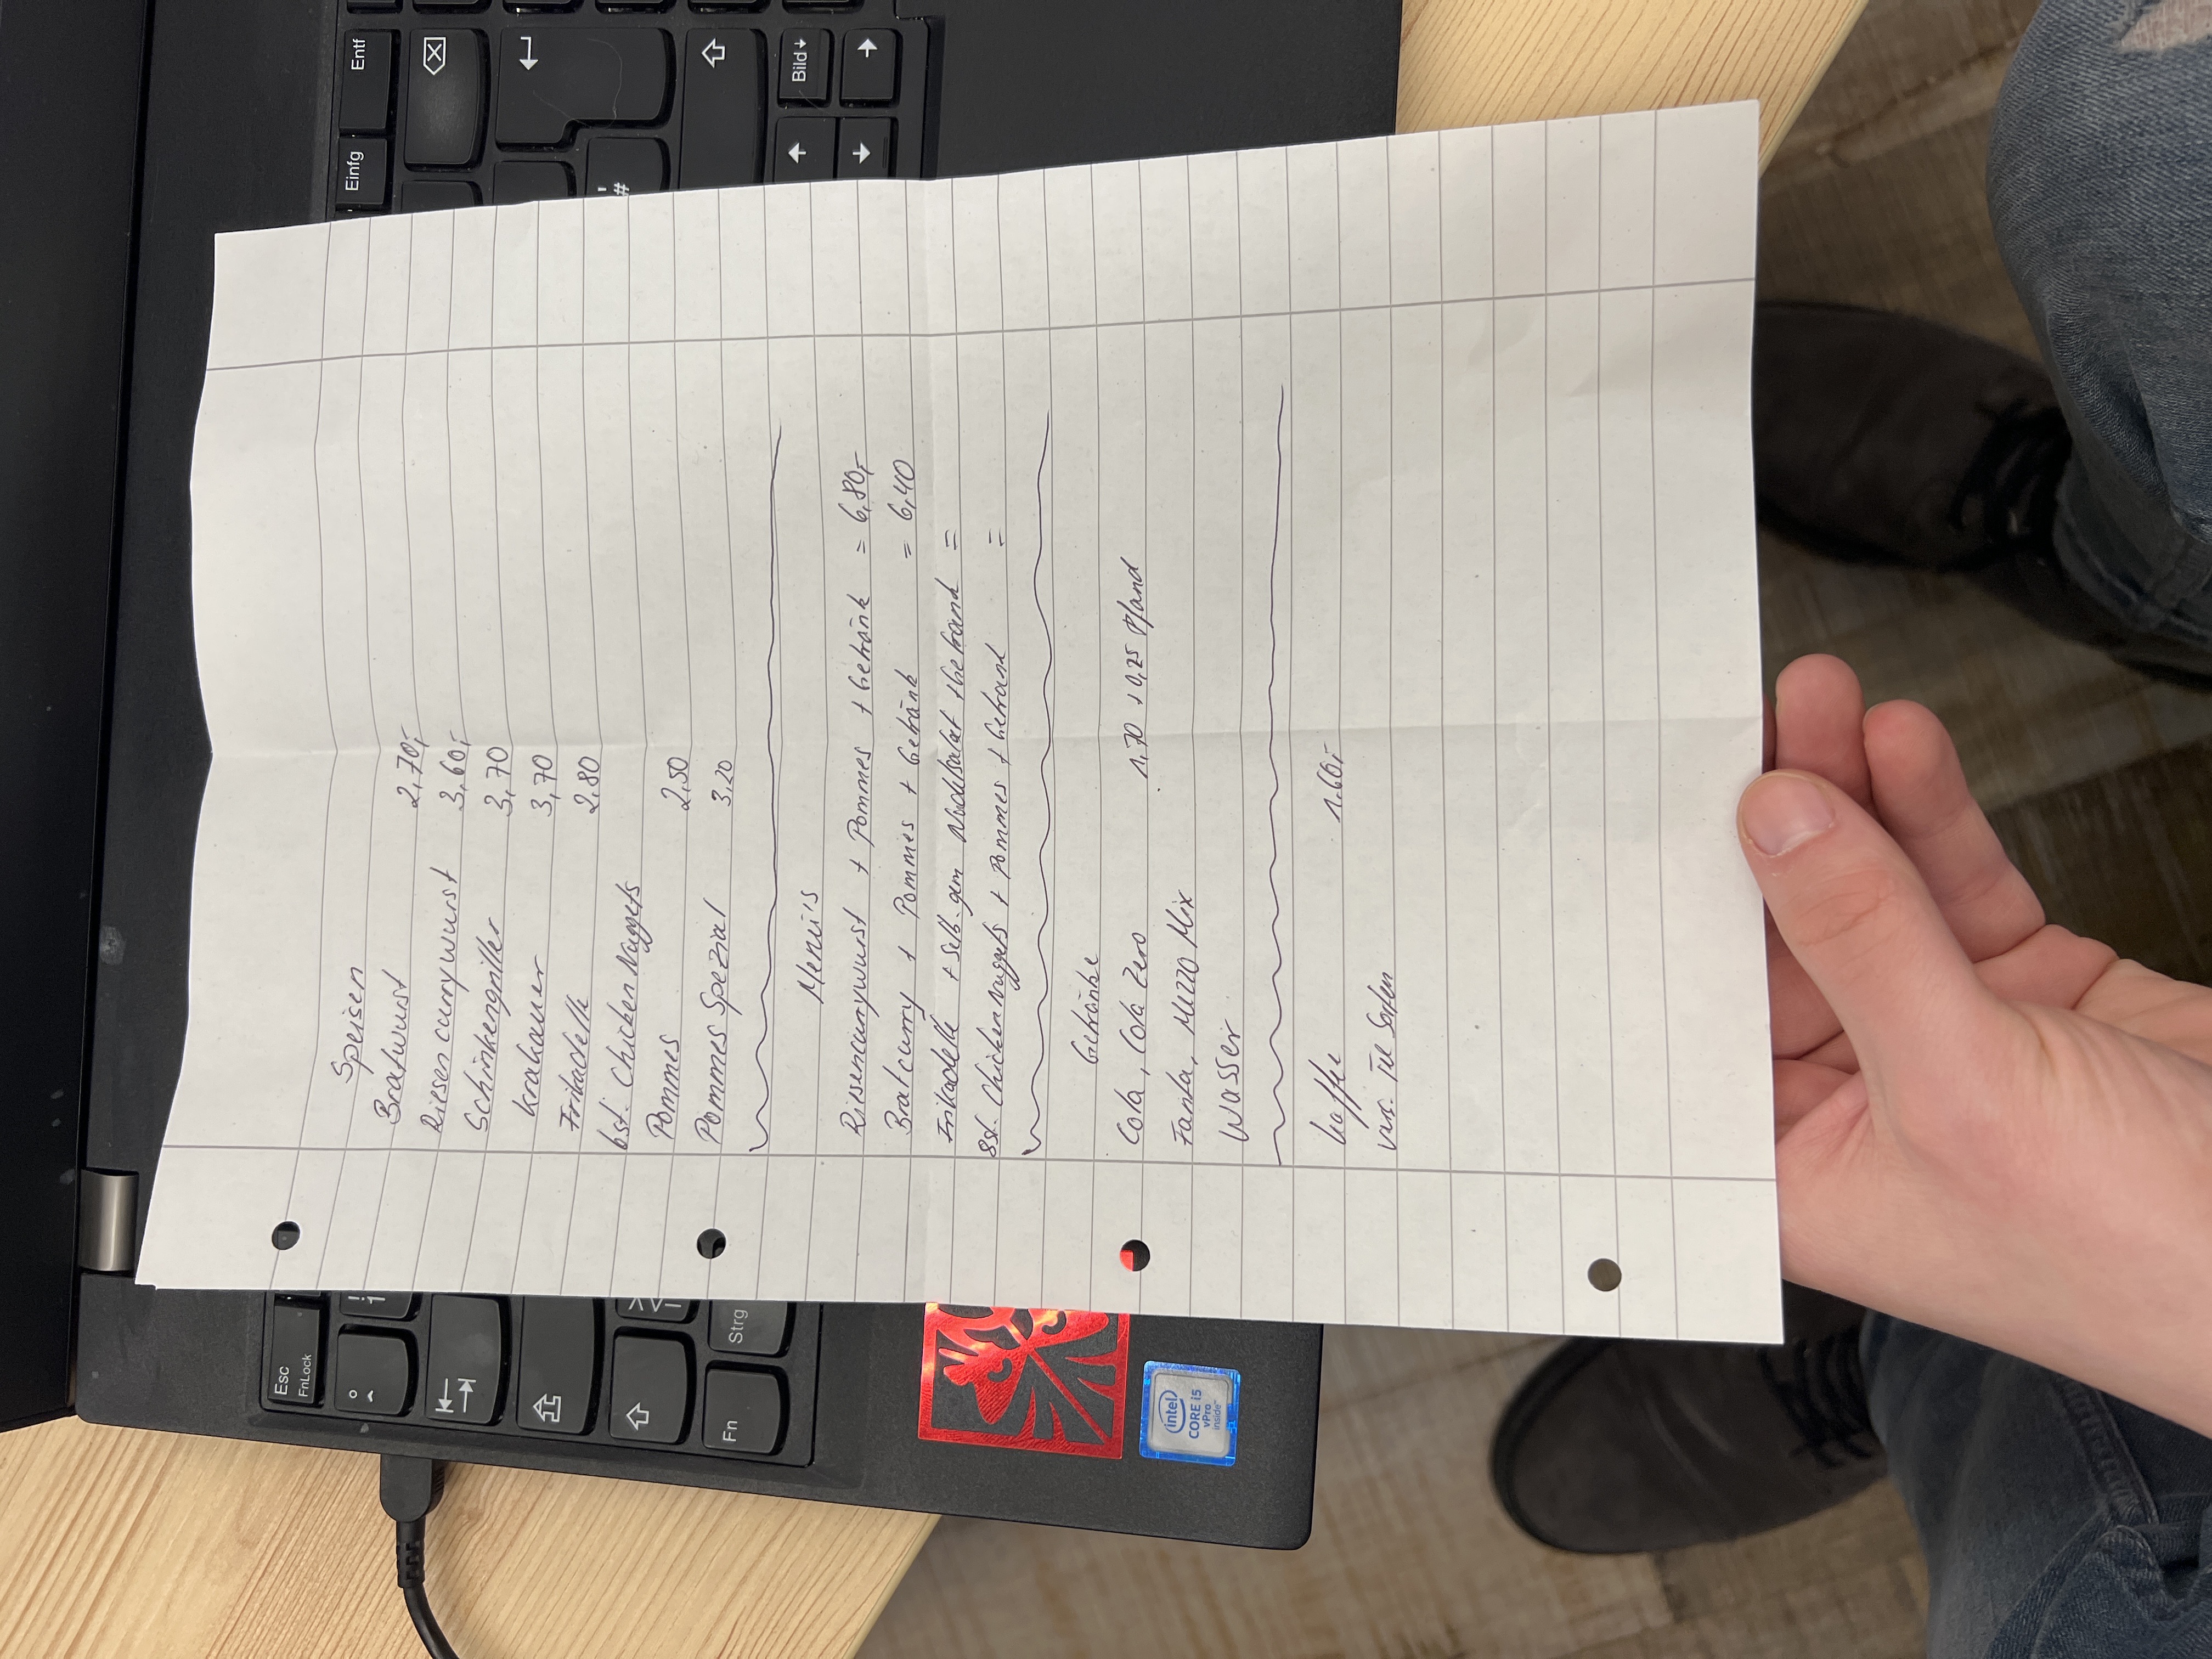 Speisen
Bratwurst 2,70,-
Riesencurrywurst 3,60,-
Schinkengriller 3,70
Krakauer 3,70
Frikadelle 2,80
6st. Chicken Nuggets
Pommes 2,50
Pommes Spezial 3,20
Menü's
Riesencurrywurst + Pommes + Getränk = 6,80,-
Bratcurry + Pommes + Getränk = 6,40
Frikadelle + Selb.gem Nudelsalat + Getränk =
8st. Chicken Nuggets + Pommes + Getränk =
Getränke
Cola, Cola Zero 1,70 + 0,25 Pfand
Fanta, Mezzo Mix
Wasser
Kaffee 1.60,-
vers. Tee Sorten
Entf
Einfg
Bild
#
Esc
FnLock
Strg
Fn
intel
CORE i5
vPro
inside™